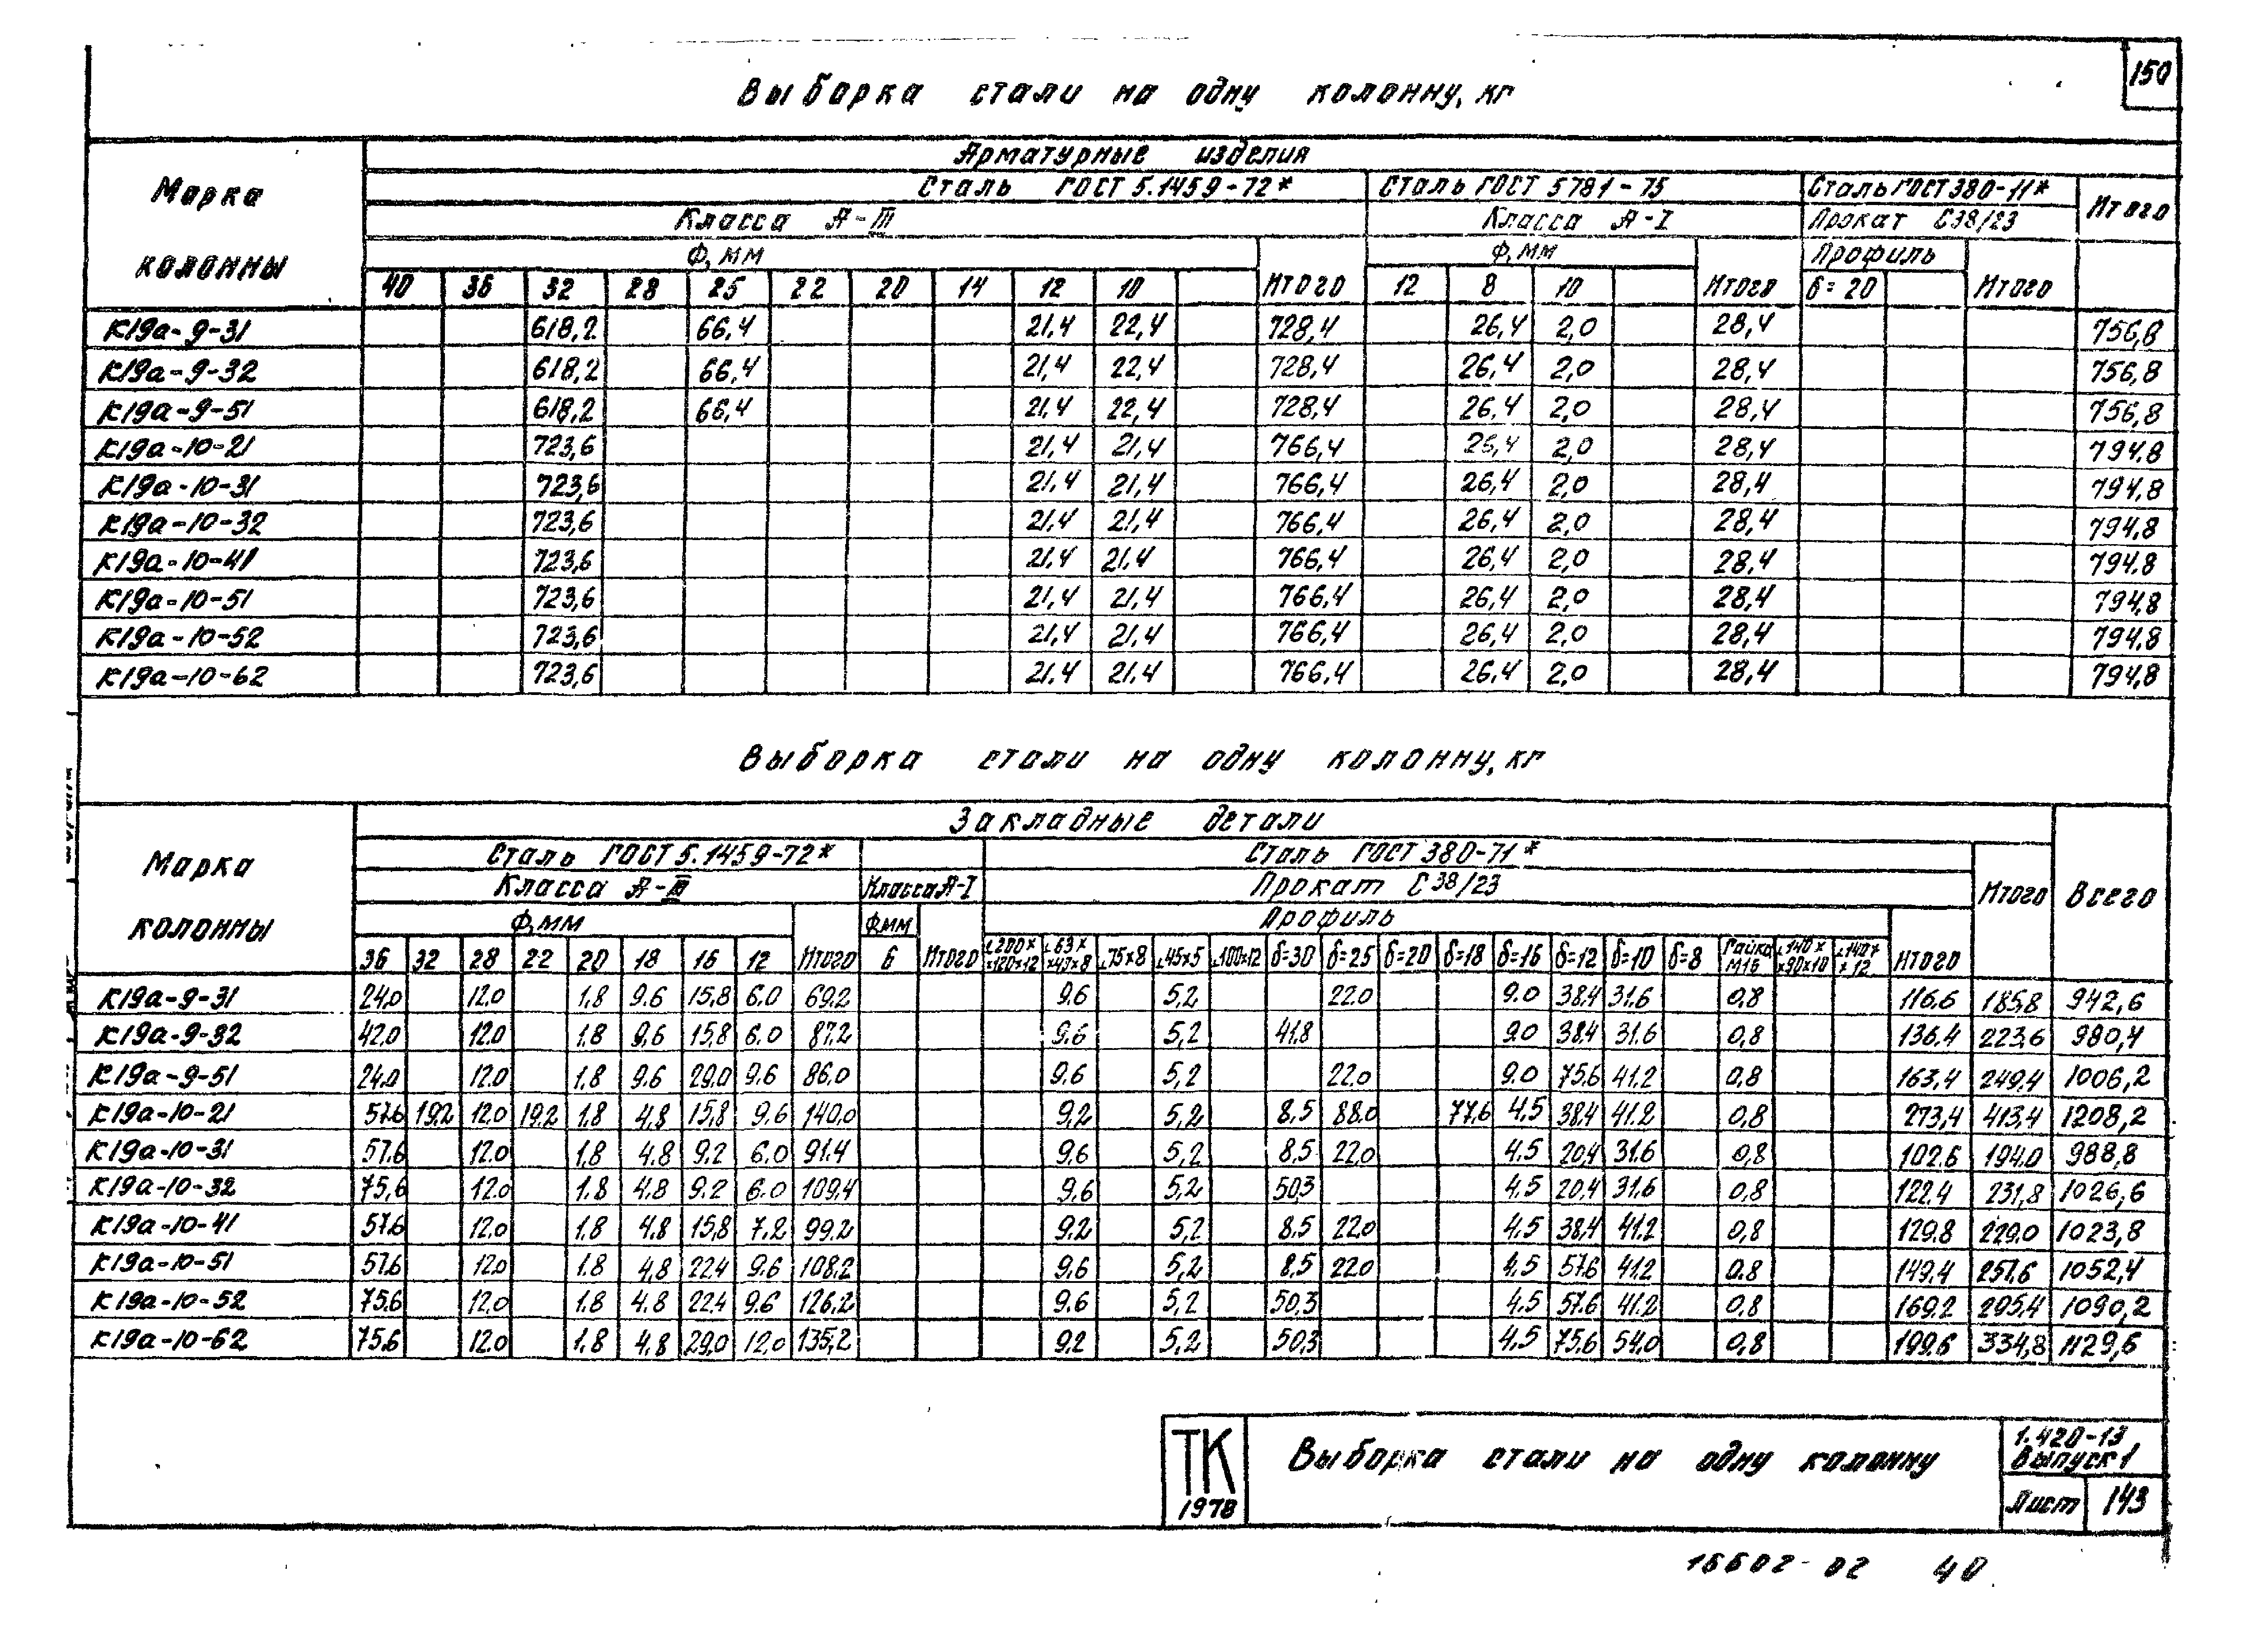 150
Выборка стали на одну колонну, кг
Марка колонны
Арматурные изделия
Сталь ГОСТ 5.1459-72* Сталь ГОСТ 5781-75 Сталь ГОСТ 380-71* Итого
Класса А-III Класса А-I Прокат С38/23
Ф, мм Итого Ф, мм Итого Профиль Итого
40 36 32 28 25 22 20 14 12 10 12 8 10 δ=20
К19а-9-31 618,2 66,4 21,4 22,4 728,4 26,4 2,0 28,4 756,8
К19а-9-32 618,2 66,4 21,4 22,4 728,4 26,4 2,0 28,4 756,8
К19а-9-51 618,2 66,4 21,4 22,4 728,4 26,4 2,0 28,4 756,8
К19а-10-21 723,6 21,4 21,4 766,4 26,4 2,0 28,4 794,8
К19а-10-31 723,6 21,4 21,4 766,4 26,4 2,0 28,4 794,8
К19а-10-32 723,6 21,4 21,4 766,4 26,4 2,0 28,4 794,8
К19а-10-41 723,6 21,4 21,4 766,4 26,4 2,0 28,4 794,8
К19а-10-51 723,6 21,4 21,4 766,4 26,4 2,0 28,4 794,8
К19а-10-52 723,6 21,4 21,4 766,4 26,4 2,0 28,4 794,8
К19а-10-62 723,6 21,4 21,4 766,4 26,4 2,0 28,4 794,8
Выборка стали на одну колонну, кг
Марка колонны
Закладные детали
Сталь ГОСТ 5.1459-72* Сталь ГОСТ 380-71* Итого Всего
Класса А-III Класса А-I Прокат С38/23
Ф, мм Итого Ф мм Итого Профиль Итого
36 32 28 22 20 18 16 12 6 ∟200×120×12 ∟63×40×8 ∟75×8 ∟45×5 ∟100×12 δ=30 δ=25 δ=20 δ=18 δ=16 δ=12 δ=10 δ=8 Гайка М16 ∟140×90×10 ∟140××12
К19а-9-31 24.0 12.0 1.8 9.6 15.8 6.0 69.2 9.6 5.2 22.0 9.0 38.4 31.6 0,8 116.6 185,8 942,6
К19а-9-32 42.0 12.0 1.8 9,6 15,8 6.0 87.2 9.6 5,2 41.8 9.0 38.4 31.6 0,8 136.4 223,6 980,4
К19а-9-51 24.0 12.0 1.8 9.6 29.0 9.6 86.0 9.6 5,2 22.0 9.0 75.6 41.2 0.8 163,4 249.4 1006,2
К19а-10-21 57.6 19.2 12.0 19.2 1.8 4.8 15,8 9.6 140.0 9.2 5.2 8.5 88.0 77.6 4.5 38.4 41.2 0,8 273,4 413,4 1208,2
К19а-10-31 57.6 12.0 1.8 4.8 9.2 6.0 91.4 9.6 5,2 8.5 22.0 4.5 20,4 31.6 0,8 102.6 194.0 988,8
К19а-10-32 75,6 12.0 1.8 4.8 9.2 6.0 109,4 9.6 5,2 50.3 4.5 20.4 31.6 0,8 122.4 231,8 1026,6
К19а-10-41 57.6 12.0 1.8 4.8 15,8 7.2 99.2 9.2 5.2 8.5 22.0 4.5 38,4 41.2 0,8 129.8 229.0 1023,8
К19а-10-51 57.6 12.0 1.8 4,8 22.4 9.6 108.2 9.6 5,2 8.5 22.0 4.5 57.6 41.2 0.8 149.4 257.6 1052,4
К19а-10-52 75.6 12.0 1.8 4.8 22.4 9.6 126.2 9.6 5,2 50.3 4.5 57.6 41.2 0,8 169.2 295.4 1090,2
К19а-10-62 75.6 12.0 1.8 4.8 29.0 12.0 135,2 9.2 5,2 50.3 4,5 75.6 54.0 0,8 199.6 334,8 1129,6
ТК
1978
Выборка стали на одну колонну
1.420-13
Выпуск 1
Лист 143
16602-02 40